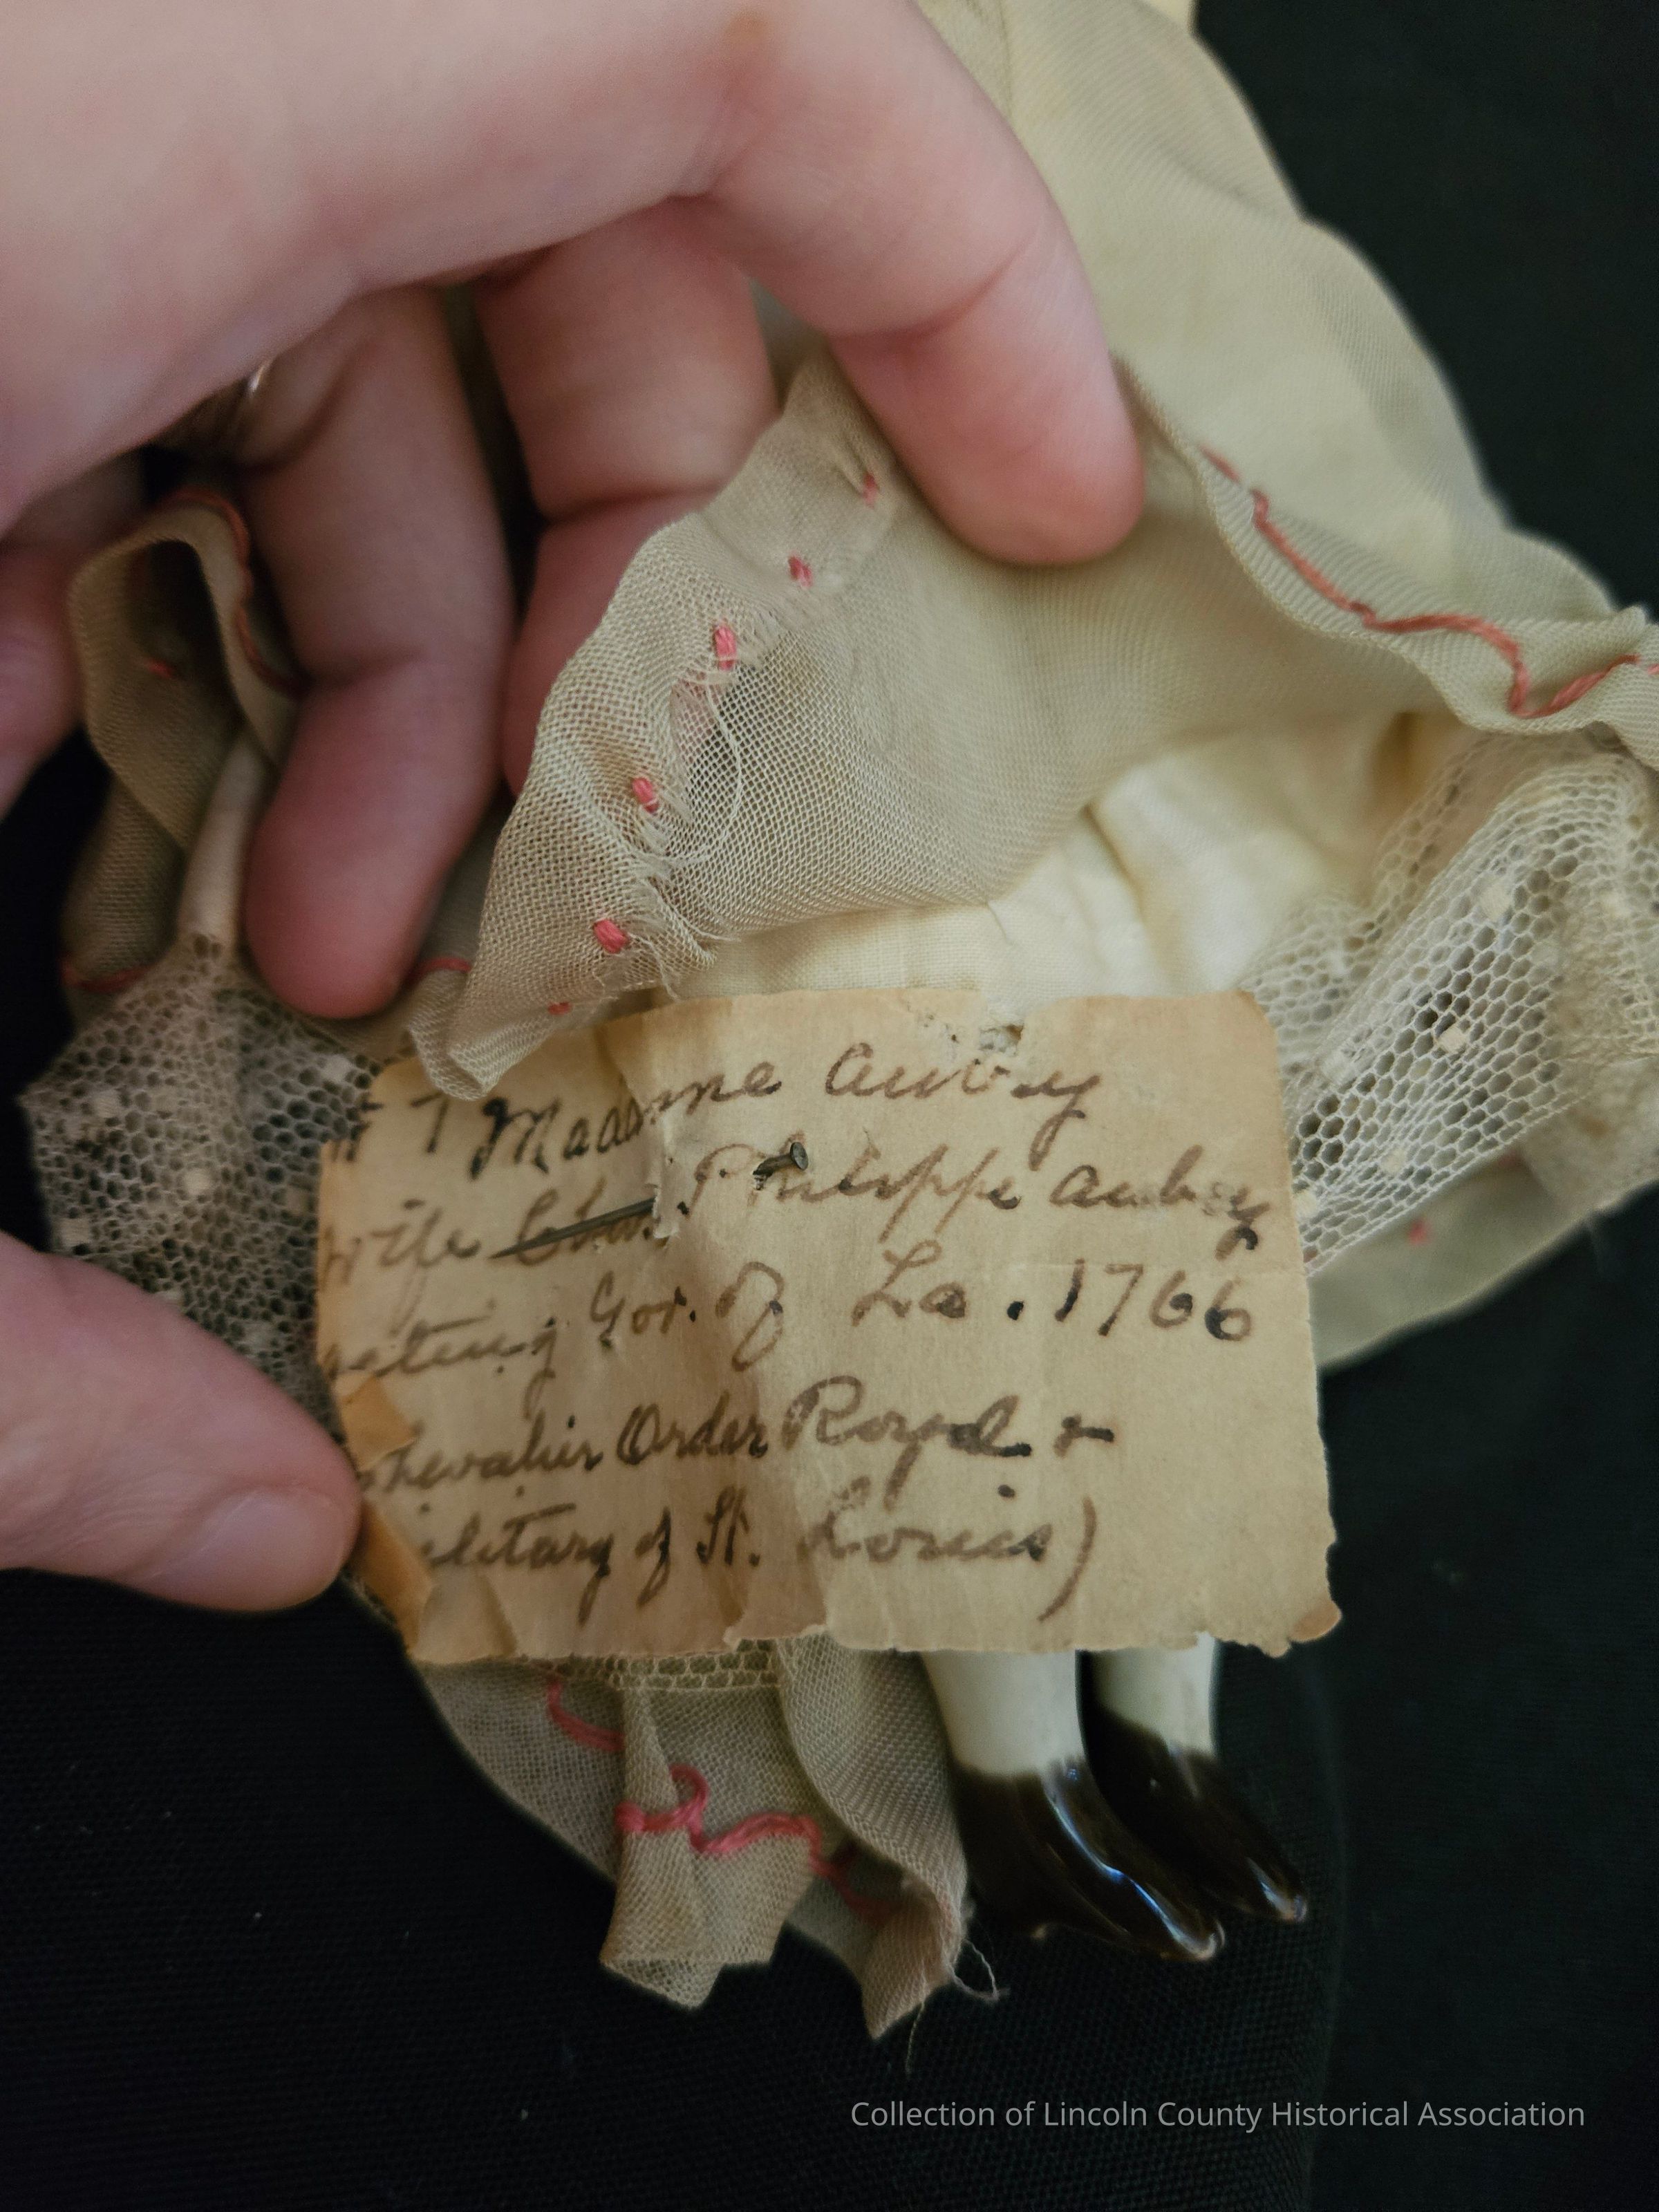 # 7 Madame Aubry
wife Chas. Philippe Aubry
acting Gov. of La. 1766
Chevalier Order Royal &
Military of St. Louis)
Collection of Lincoln County Historical Association